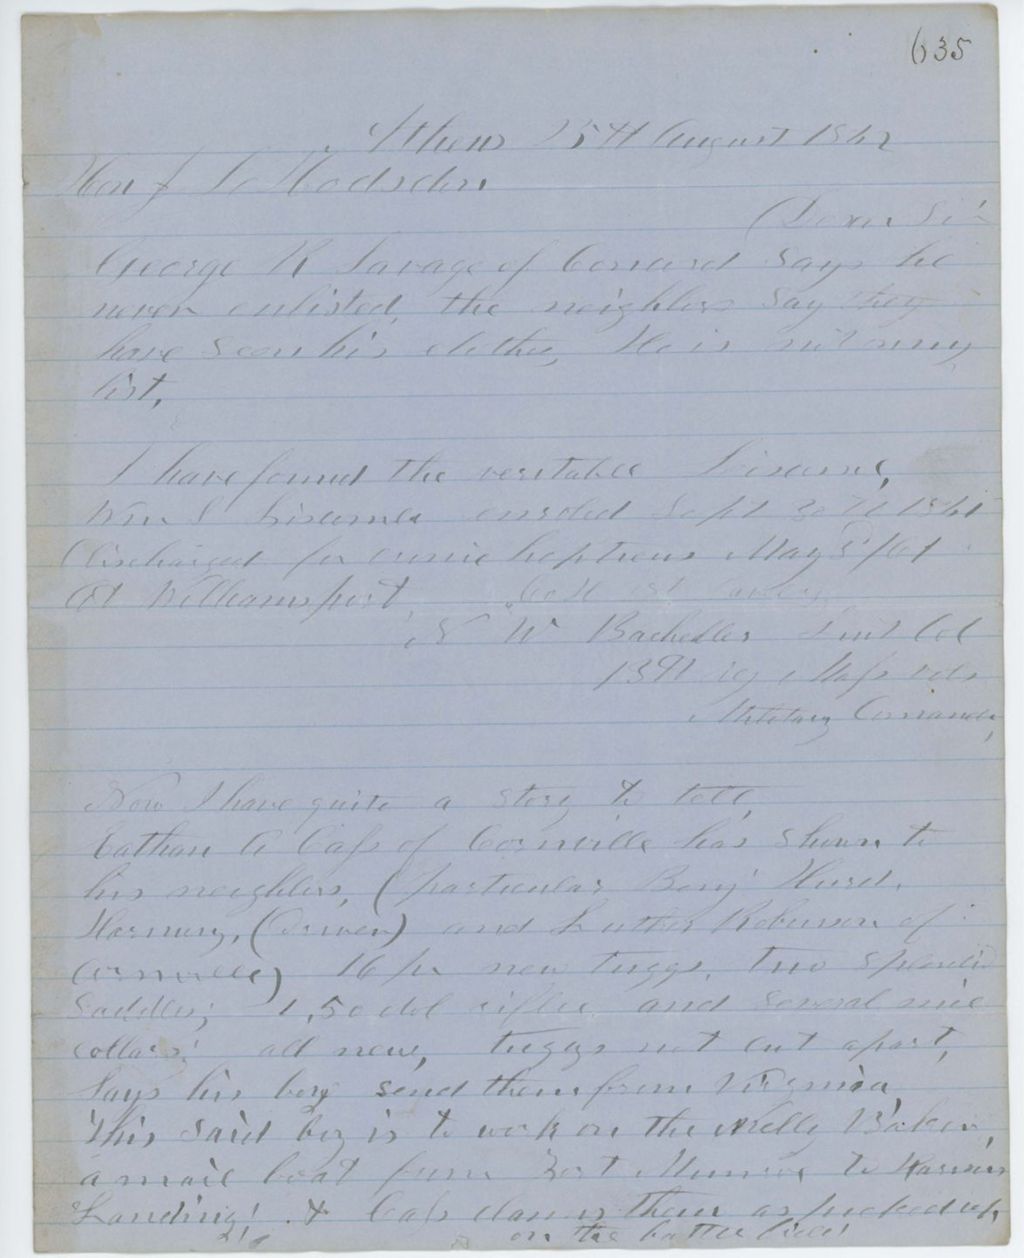 635
Athens 25th August 1862
Hon J L Hodsdon
Dear Sir
George R Savage of Concord says he
never enlisted, the neighbors say they
have seen his clothes, He is not on my
list,
I have found the veritable
Wm S enroled Sept 30th 1861
Discharged for May 8th
At Williamsport, Co
N W Batchelder Leiut Col
13th reg Mass vols
Military Comander,
Now I have quite a story to tell,
Nathan A Cass of Cornville has shown to
his neighbors, (particular Benj Hurd,
Harmony, (Drover) and Luther Robinson of
Cornville) 16 pr new tuggs, two splendid
Saddles; 1, 50 dol rifle and several nice
collars; all new, tuggs not cut apart,
Says his boy send them from Virginia
This said boy is to work on the Nelly Baker,
a mail boat from Fort Munroe to Harrisons
Landing; & Cass claims them as picked up
on the battle field